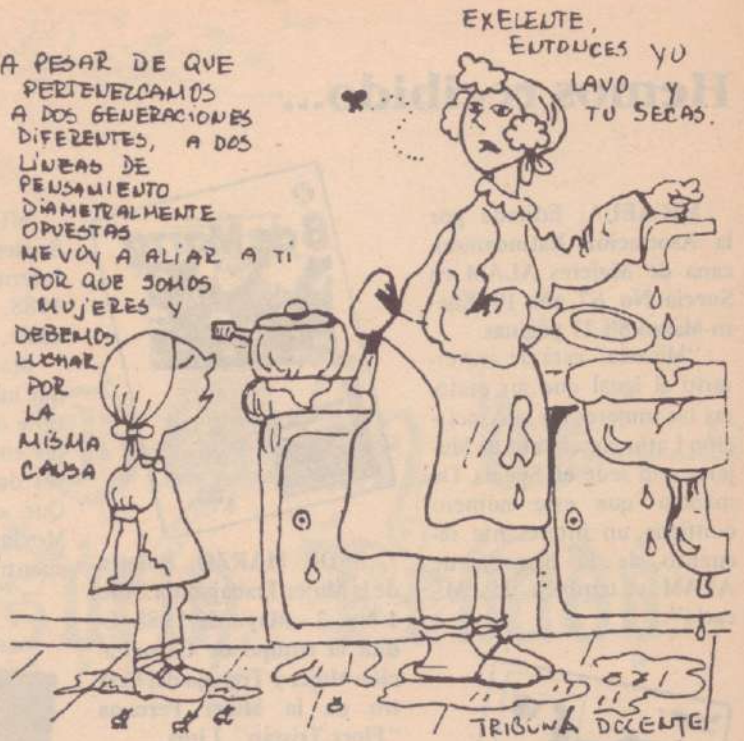 A PESAR DE QUE
PERTENEZCAMOS
A DOS GENERACIONES
DIFERENTES, A DOS
LÍNEAS DE
PENSAMIENTO
DIAMETRALMENTE
OPUESTAS
ME VOY A ALIAR A TÍ
POR QUE SOMOS
MUJERES Y
DEBEMOS
LUCHAR
POR
LA
MISMA
CAUSA
EXELENTE,
ENTONCES YO
LAVO Y
TU SECAS.
TRIBUNA DOCENTE